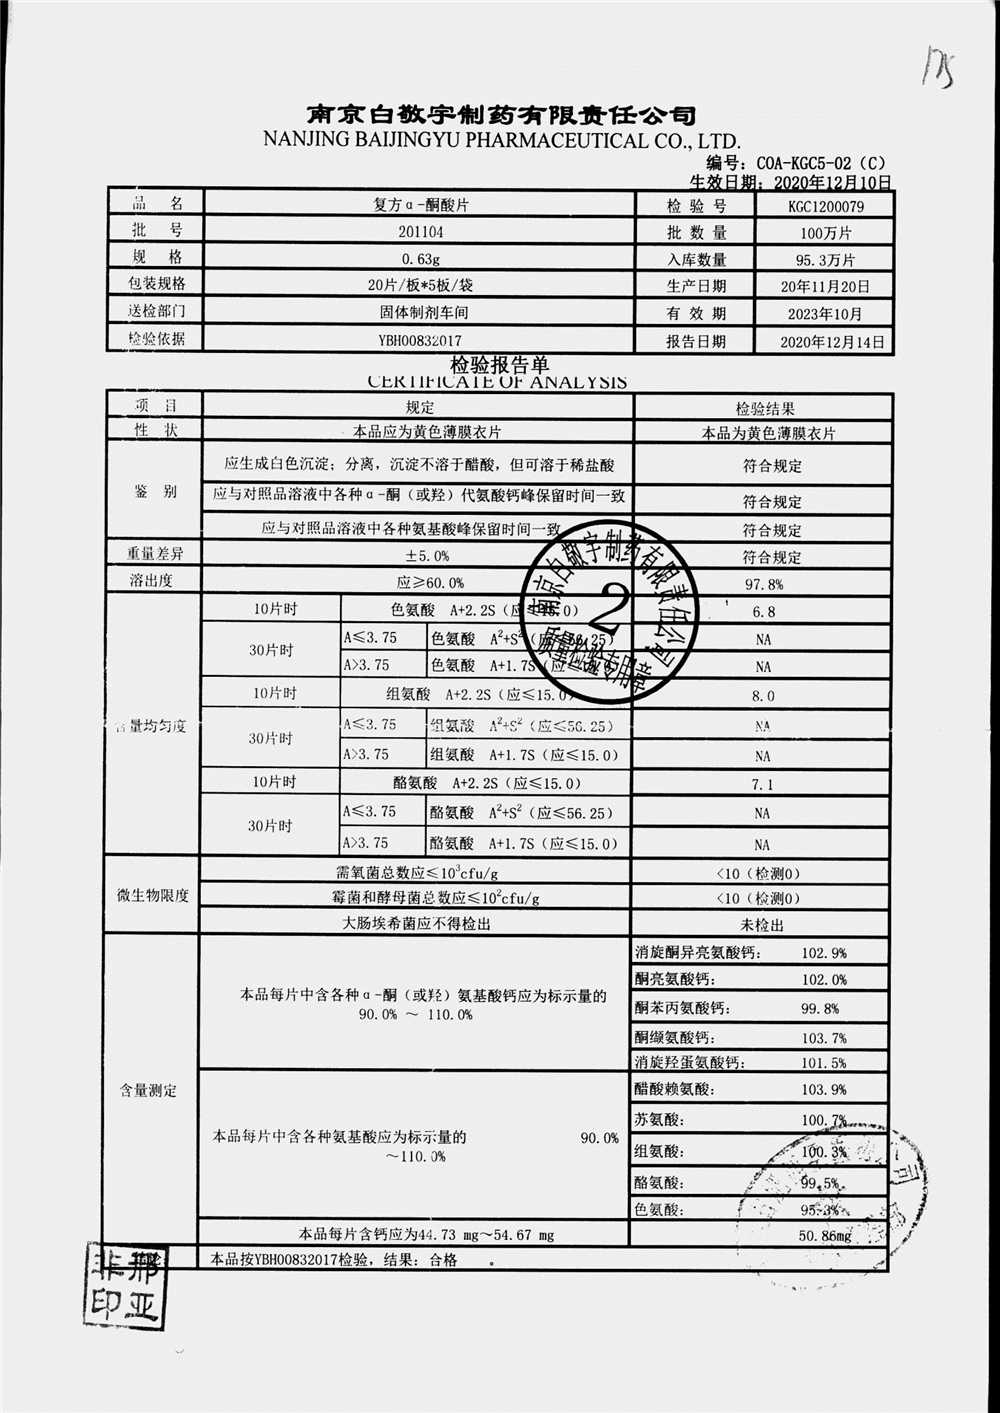 175
南京白敬宇制药有限责任公司
NANJING BAIJINGYU PHARMACEUTICAL CO., LTD.
编号：COA-KGC5-02（C）
生效日期：2020年12月10日
品 名 复方α-酮酸片 检 验 号 KGC1200079
批 号 201104 批 数 量 100万片
规 格 0.63g 入库数量 95.3万片
包装规格 20片/板*5板/袋 生产日期 20年11月20日
送检部门 固体制剂车间 有 效 期 2023年10月
检验依据 YBH00832017 报告日期 2020年12月14日
检验报告单
CERTIFICATE OF ANALYSIS
项 目 规定 检验结果
性 状 本品应为黄色薄膜衣片 本品为黄色薄膜衣片
鉴 别 应生成白色沉淀；分离，沉淀不溶于醋酸，但可溶于稀盐酸 符合规定
应与对照品溶液中各种α-酮（或羟）代氨酸钙峰保留时间一致 符合规定
应与对照品溶液中各种氨基酸峰保留时间一致 符合规定
重量差异 ±5.0% 符合规定
溶出度 应≥60.0% 97.8%
含量均匀度 10片时 色氨酸 A+2.2S（应≤15.0） 6.8
30片时 A≤3.75 色氨酸 A²+S²（应≤56.25） NA
A>3.75 色氨酸 A+1.7S（应≤15.0） NA
10片时 组氨酸 A+2.2S（应≤15.0） 8.0
30片时 A≤3.75 组氨酸 A²+S²（应≤56.25） NA
A>3.75 组氨酸 A+1.7S（应≤15.0） NA
10片时 酪氨酸 A+2.2S（应≤15.0） 7.1
30片时 A≤3.75 酪氨酸 A²+S²（应≤56.25） NA
A>3.75 酪氨酸 A+1.7S（应≤15.0） NA
微生物限度 需氧菌总数应≤10³cfu/g <10（检测0）
霉菌和酵母菌总数应≤10²cfu/g <10（检测0）
大肠埃希菌应不得检出 未检出
含量测定 本品每片中含各种α-酮（或羟）氨基酸钙应为标示量的
90.0% ～ 110.0%
消旋酮异亮氨酸钙： 102.9%
酮亮氨酸钙： 102.0%
酮苯丙氨酸钙： 99.8%
酮缬氨酸钙： 103.7%
消旋羟蛋氨酸钙： 101.5%
本品每片中含各种氨基酸应为标示量的 90.0%
～110.0%
醋酸赖氨酸： 103.9%
苏氨酸： 100.7%
组氨酸： 100.3%
酪氨酸： 99.5%
色氨酸： 95.3%
本品每片含钙应为44.73 mg～54.67 mg 50.86mg
本品按YBH00832017检验，结果：合格 。
南京白敬宇制药有限责任公司
2
质量检验专用章
非邢
印亚